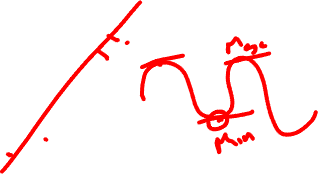 Max
Min